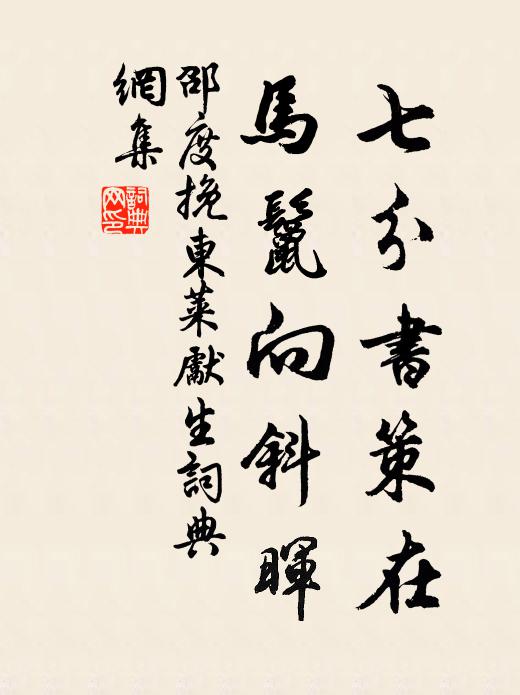 七分書策在
馬鬣向斜暉
邵度挽東萊獻生詞典
網集
詞典
网印